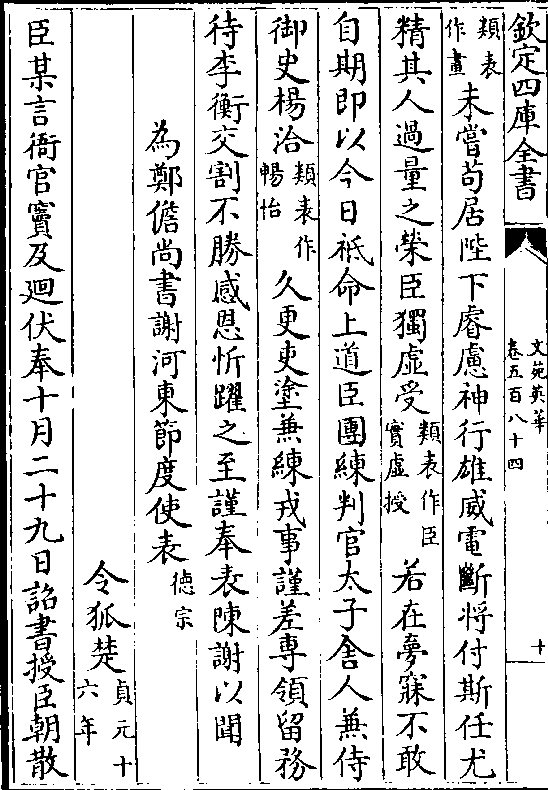 欽定四庫全書
文苑英華
卷五百八十四
十
類表作畫未嘗苟居陛下睿慮神行雄威電斷將付斯任尤
精其人過量之榮臣獨虛受類表作臣實虛授若在夢寐不敢
自期即以今日祗命上道臣團練判官太子舍人兼侍
御史楊治類表作暢怡久更吏塗兼練戎事謹差專領留務
待李衡交割不勝感恩忻躍之至謹奉表陳謝以聞
為鄭儋尚書謝河東節度使表德宗
令狐楚貞元十六年
臣某言衙官竇及廻伏奉十月二十九日詔書授臣朝散